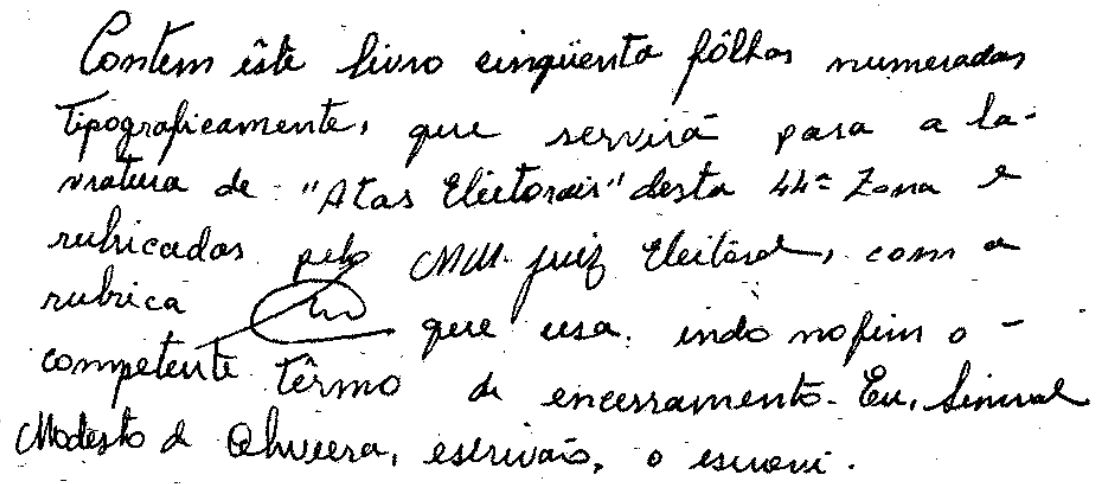 Contem êste livro cinqüenta fôlhas numeradas
tipograficamente, que servirá para a la-
vratura de "Atas Eleitorais" desta 44ª Zona e
rubricadas pelo MM. Juiz Eleitoral, com a
rubrica que usa, indo no fim o -
competente têrmo de encerramento. Eu, Sinval
Modesto de Oliveira, escrivão, o escrevi.